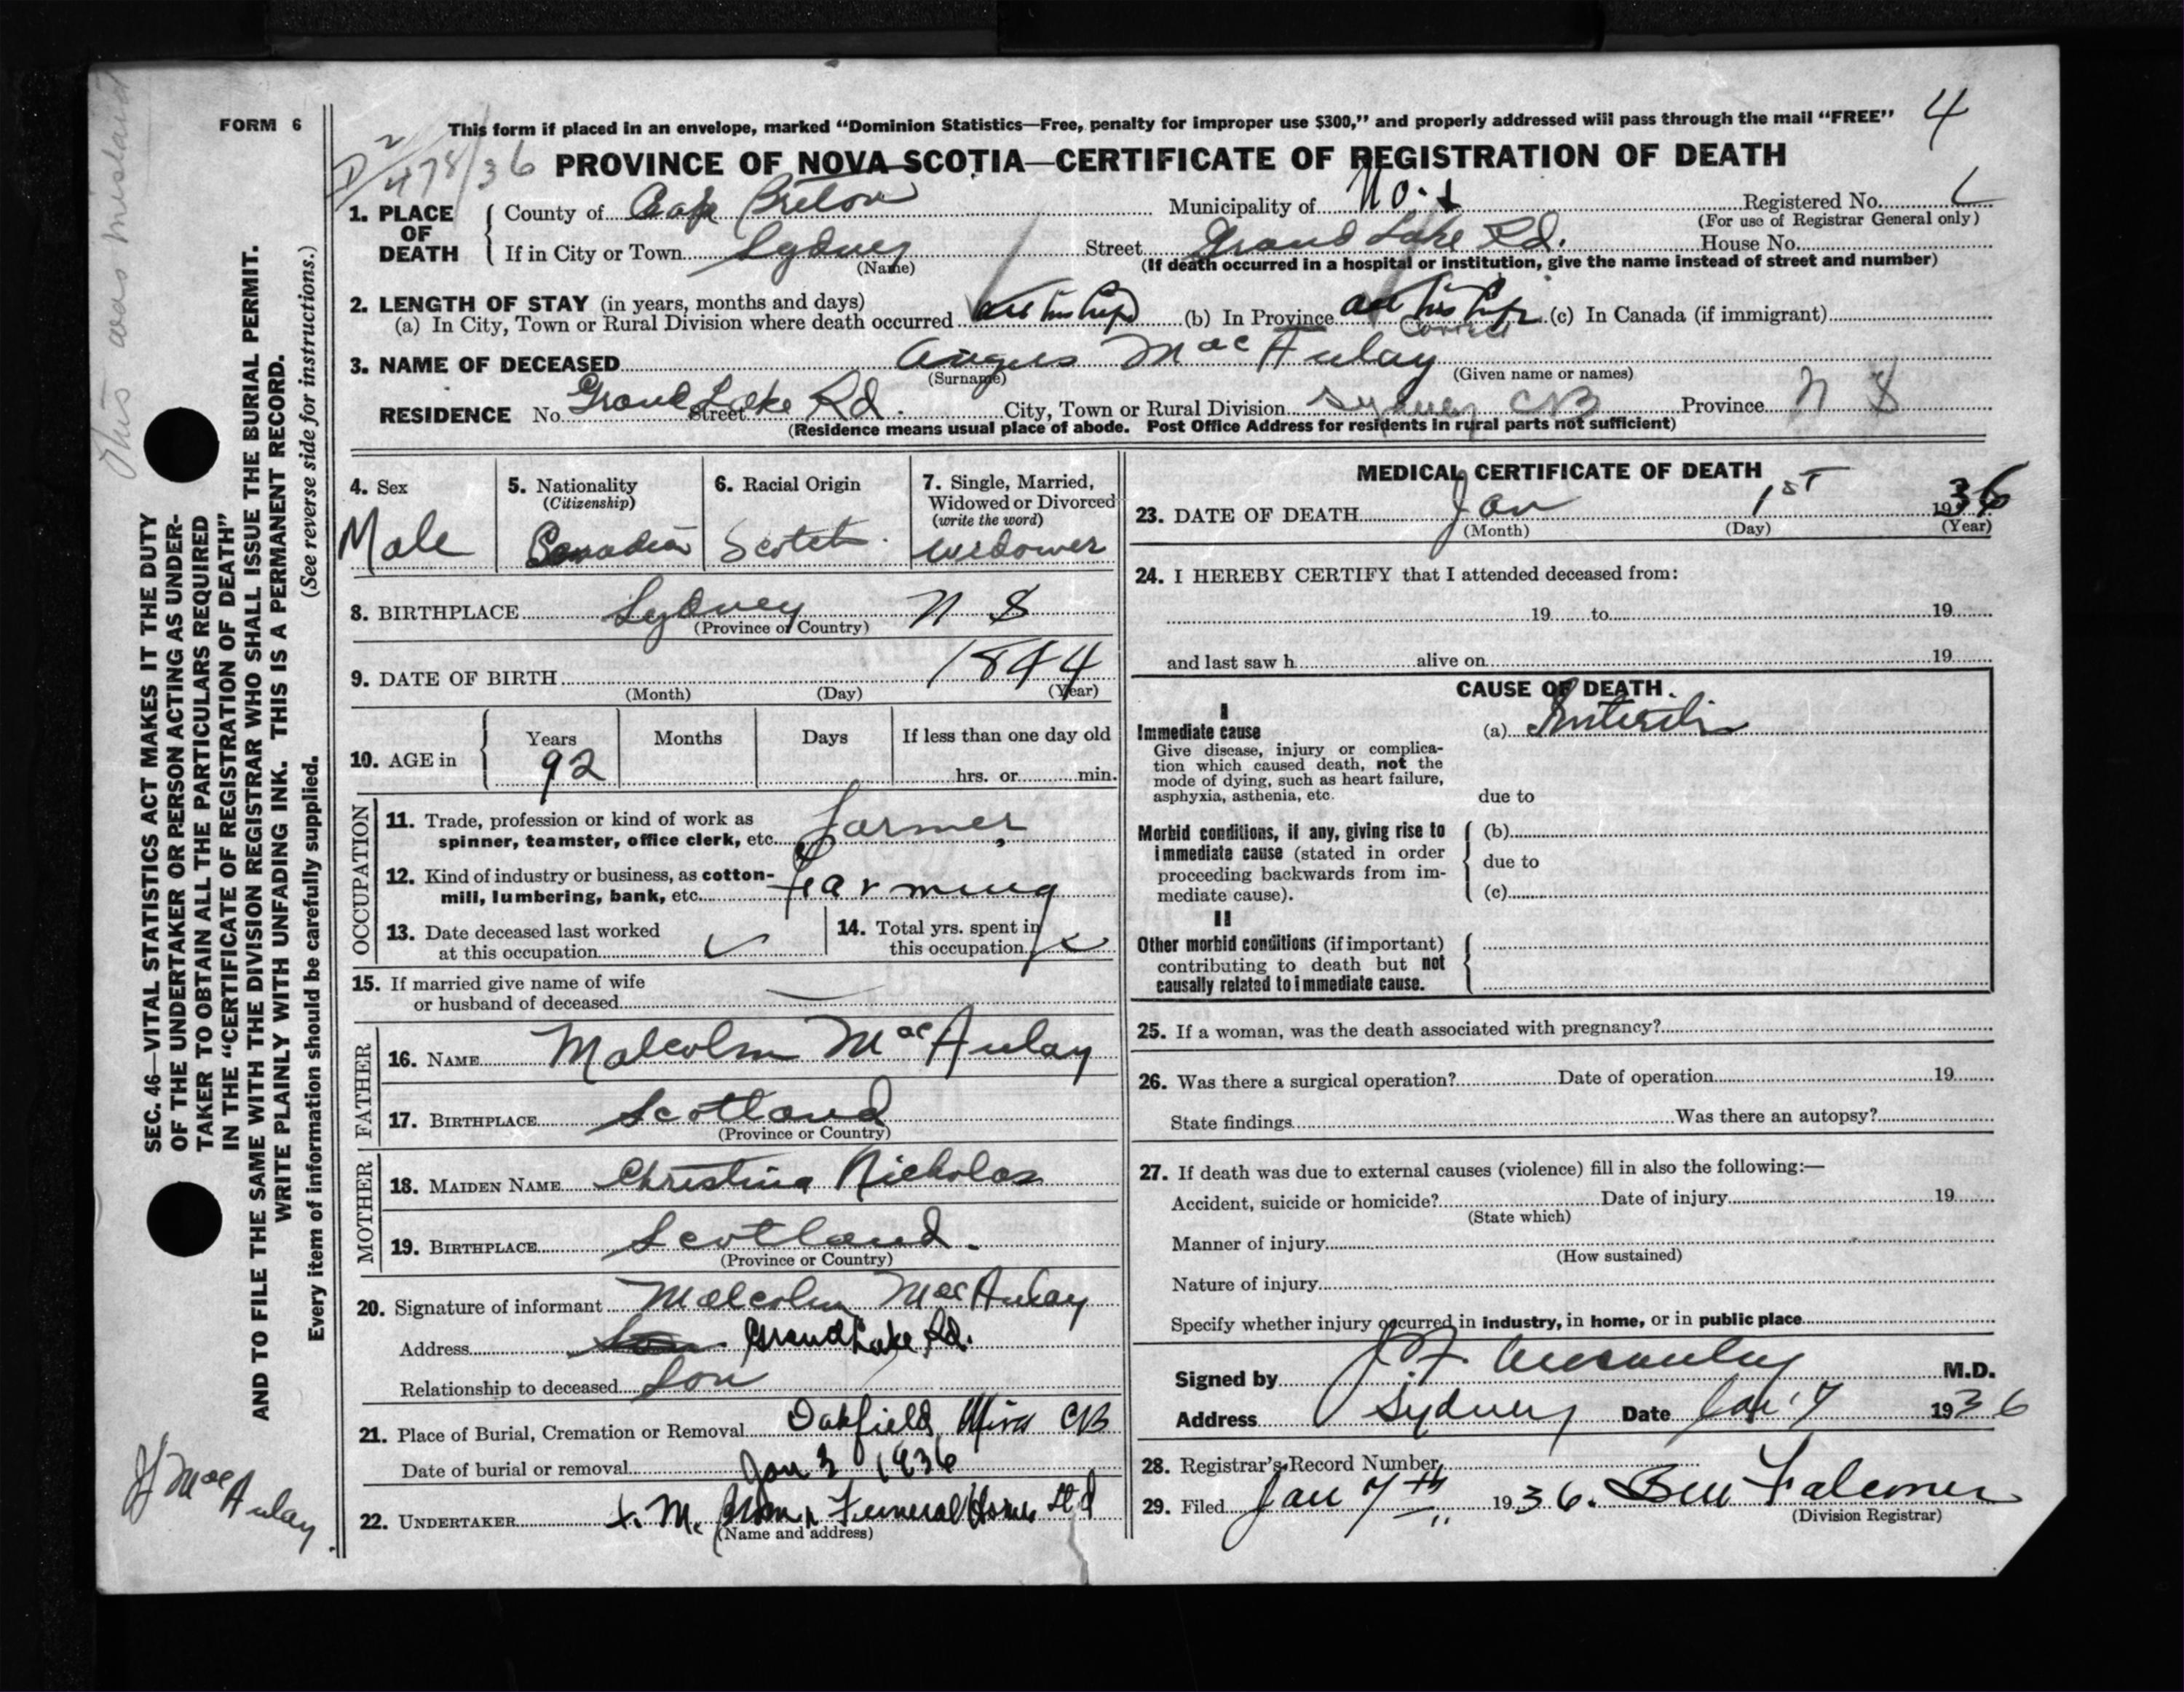 This was mislaid
FORM 6
SEC. 46—VITAL STATISTICS ACT MAKES IT THE DUTY
OF THE UNDERTAKER OR PERSON ACTING AS UNDER-
TAKER TO OBTAIN ALL THE PARTICULARS REQUIRED
IN THE "CERTIFICATE OF REGISTRATION OF DEATH"
AND TO FILE THE SAME WITH THE DIVISION REGISTRAR WHO SHALL ISSUE THE BURIAL PERMIT.
WRITE PLAINLY WITH UNFADING INK. THIS IS A PERMANENT RECORD.
(See reverse side for instructions.)
Every item of information should be carefully supplied.
MacAulay
This form if placed in an envelope, marked "Dominion Statistics—Free, penalty for improper use $300," and properly addressed will pass through the mail "FREE"
4
478/36
PROVINCE OF NOVA SCOTIA—CERTIFICATE OF REGISTRATION OF DEATH
1. PLACE OF DEATH County of Cape Breton Municipality of Registered No.
(For use of Registrar General only)
If in City or Town Sydney Street Grand Lake Rd. House No.
(Name) (If death occurred in a hospital or institution, give the name instead of street and number)
2. LENGTH OF STAY (in years, months and days)
(a) In City, Town or Rural Division where death occurred all his life (b) In Province all his life (c) In Canada (if immigrant)
Correct
3. NAME OF DECEASED Angus MacAulay
(Surname) (Given name or names)
RESIDENCE No. Grand Lake Rd. Street City, Town or Rural Division Sydney CB Province N S
(Residence means usual place of abode. Post Office Address for residents in rural parts not sufficient)
4. Sex
Male
5. Nationality
(Citizenship)
Canadian
6. Racial Origin
Scotch
7. Single, Married,
Widowed or Divorced
(write the word)
widower
8. BIRTHPLACE Sydney N S
(Province or Country)
9. DATE OF BIRTH 1844
(Month) (Day) (Year)
10. AGE in Years Months Days If less than one day old
92 hrs. or min.
OCCUPATION
11. Trade, profession or kind of work as
spinner, teamster, office clerk, etc. Farmer
12. Kind of industry or business, as cotton-
mill, lumbering, bank, etc. Farming
13. Date deceased last worked
at this occupation
14. Total yrs. spent in
this occupation
15. If married give name of wife
or husband of deceased
FATHER
16. NAME Malcolm MacAulay
17. BIRTHPLACE Scotland
(Province or Country)
MOTHER
18. MAIDEN NAME Christina Nicholas
19. BIRTHPLACE Scotland.
(Province or Country)
20. Signature of informant Malcolm MacAulay
Address Grand Lake Rd.
Relationship to deceased Son
21. Place of Burial, Cremation or Removal Oakfield, Mira CB
Date of burial or removal Jan 3 1936
22. UNDERTAKER Funeral Home Ltd
(Name and address)
MEDICAL CERTIFICATE OF DEATH
23. DATE OF DEATH Jan 1st 1936
(Month) (Day) (Year)
24. I HEREBY CERTIFY that I attended deceased from:
19 to 19
and last saw h alive on 19
CAUSE OF DEATH.
I
Immediate cause (a)
Give disease, injury or complica-
tion which caused death, not the
mode of dying, such as heart failure,
asphyxia, asthenia, etc. due to
Morbid conditions, if any, giving rise to (b)
immediate cause (stated in order due to
proceeding backwards from im-
mediate cause). (c)
II
Other morbid conditions (if important)
contributing to death but not
causally related to immediate cause.
25. If a woman, was the death associated with pregnancy?
26. Was there a surgical operation? Date of operation 19
State findings Was there an autopsy?
27. If death was due to external causes (violence) fill in also the following:—
Accident, suicide or homicide? Date of injury 19
(State which)
Manner of injury
(How sustained)
Nature of injury
Specify whether injury occurred in industry, in home, or in public place
Signed by M.D.
Address Sydney Date Jan 7 1936
28. Registrar's Record Number
29. Filed Jan 7th 1936.
(Division Registrar)